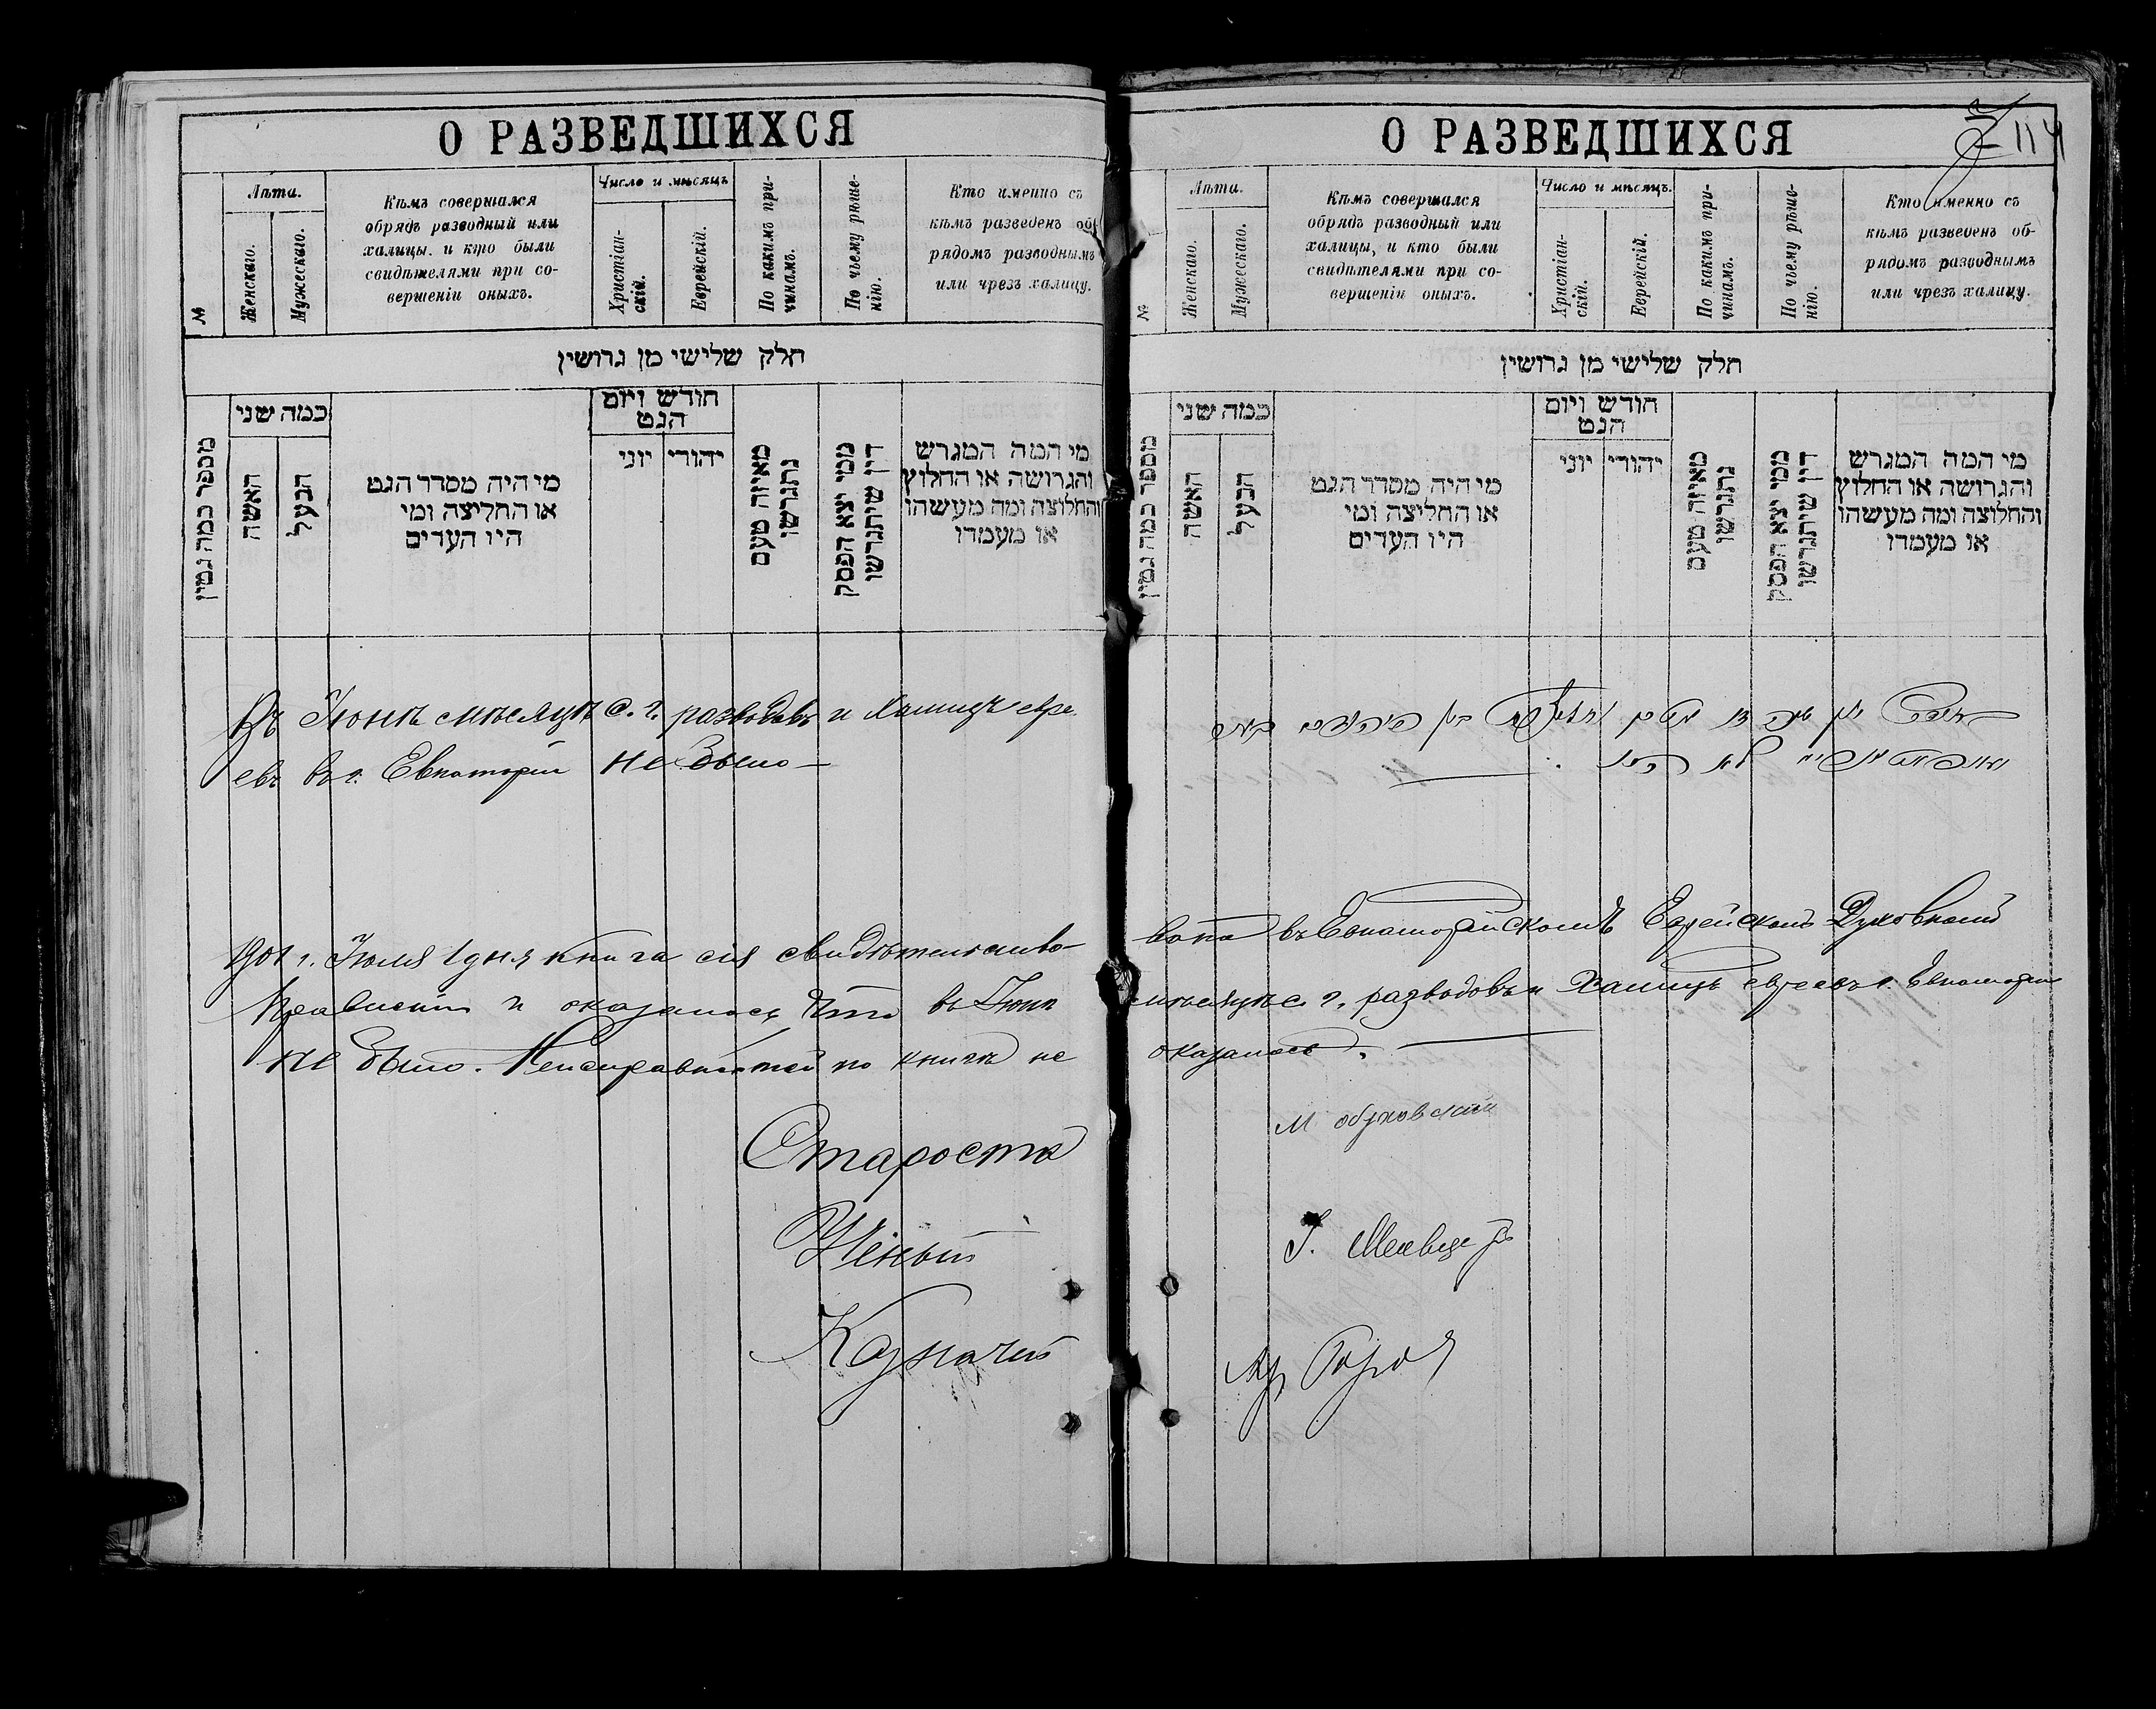 О РАЗВЕДШИХСЯ
№
Лѣта.
Женскаго.
Мужескаго.
Кѣмъ совершался
обрядъ разводный или
халицы, и кто были
свидѣтелями при со-
вершеніи оныхъ.
Число и мѣсяцъ
Христіан-
скій.
Еврейскій.
По какимъ при-
чинамъ.
По чьему рѣше-
нію.
Кто именно съ
кѣмъ разведенъ об-
рядомъ разводнымъ
или чрезъ халицу.
חלק שלישי מן גרושין
מספר כמה גטין
כמה שני
האשה
הבעל
מי היה מסדר הגט
או החליצה ומי
היו העדים
חודש ויום
הגט
יהודי יוני
מאיזה טעם
נתגרשו
ממי יצא הפסק
דין שיתגרשו
מי המה המגרש
והגרושה או החלוץ
והחלוצה ומה מעשהו
או מעמדו
Въ Іюнѣ мѣсяцѣ с. г. разводовъ и Халицъ евре-
евъ въ г. Евпаторіи не было —
1901 г. Іюля 1 дня книга сія свидѣтельство-
Правленіи и оказалось что въ Іюнѣ
не было. Неисправностей по книгѣ не
Староста
Ученый
Казначей
О РАЗВЕДШИХСЯ
114
№
Лѣта.
Женскаго.
Мужескаго.
Кѣмъ совершался
обрядъ разводный или
халицы, и кто были
свидѣтелями при со-
вершеніи оныхъ.
Число и мѣсяцъ.
Христіан-
скій.
Еврейскій.
По какимъ при-
чинамъ.
По чьему рѣше-
нію.
Кто именно съ
кѣмъ разведенъ об-
рядомъ разводнымъ
или чрезъ халицу.
חלק שלישי מן גרושין
מספר כמה גטין
כמה שני
האשה
הבעל
מי היה מסדר הגט
או החליצה ומי
היו העדים
חודש ויום
הגט
יהודי יוני
מאיזה טעם
נתגרשו
ממי יצא הפסק
דין שיתגרשו
מי המה המגרש
והגרושה או החלוץ
והחלוצה ומה מעשהו
או מעמדו
вана въ Евпаторійскомъ Еврейскомъ Духовномъ
мѣсяцѣ с. г. разводовъ и Халицъ евреевъ г. Евпаторіи
оказалось.
М Обуховскій